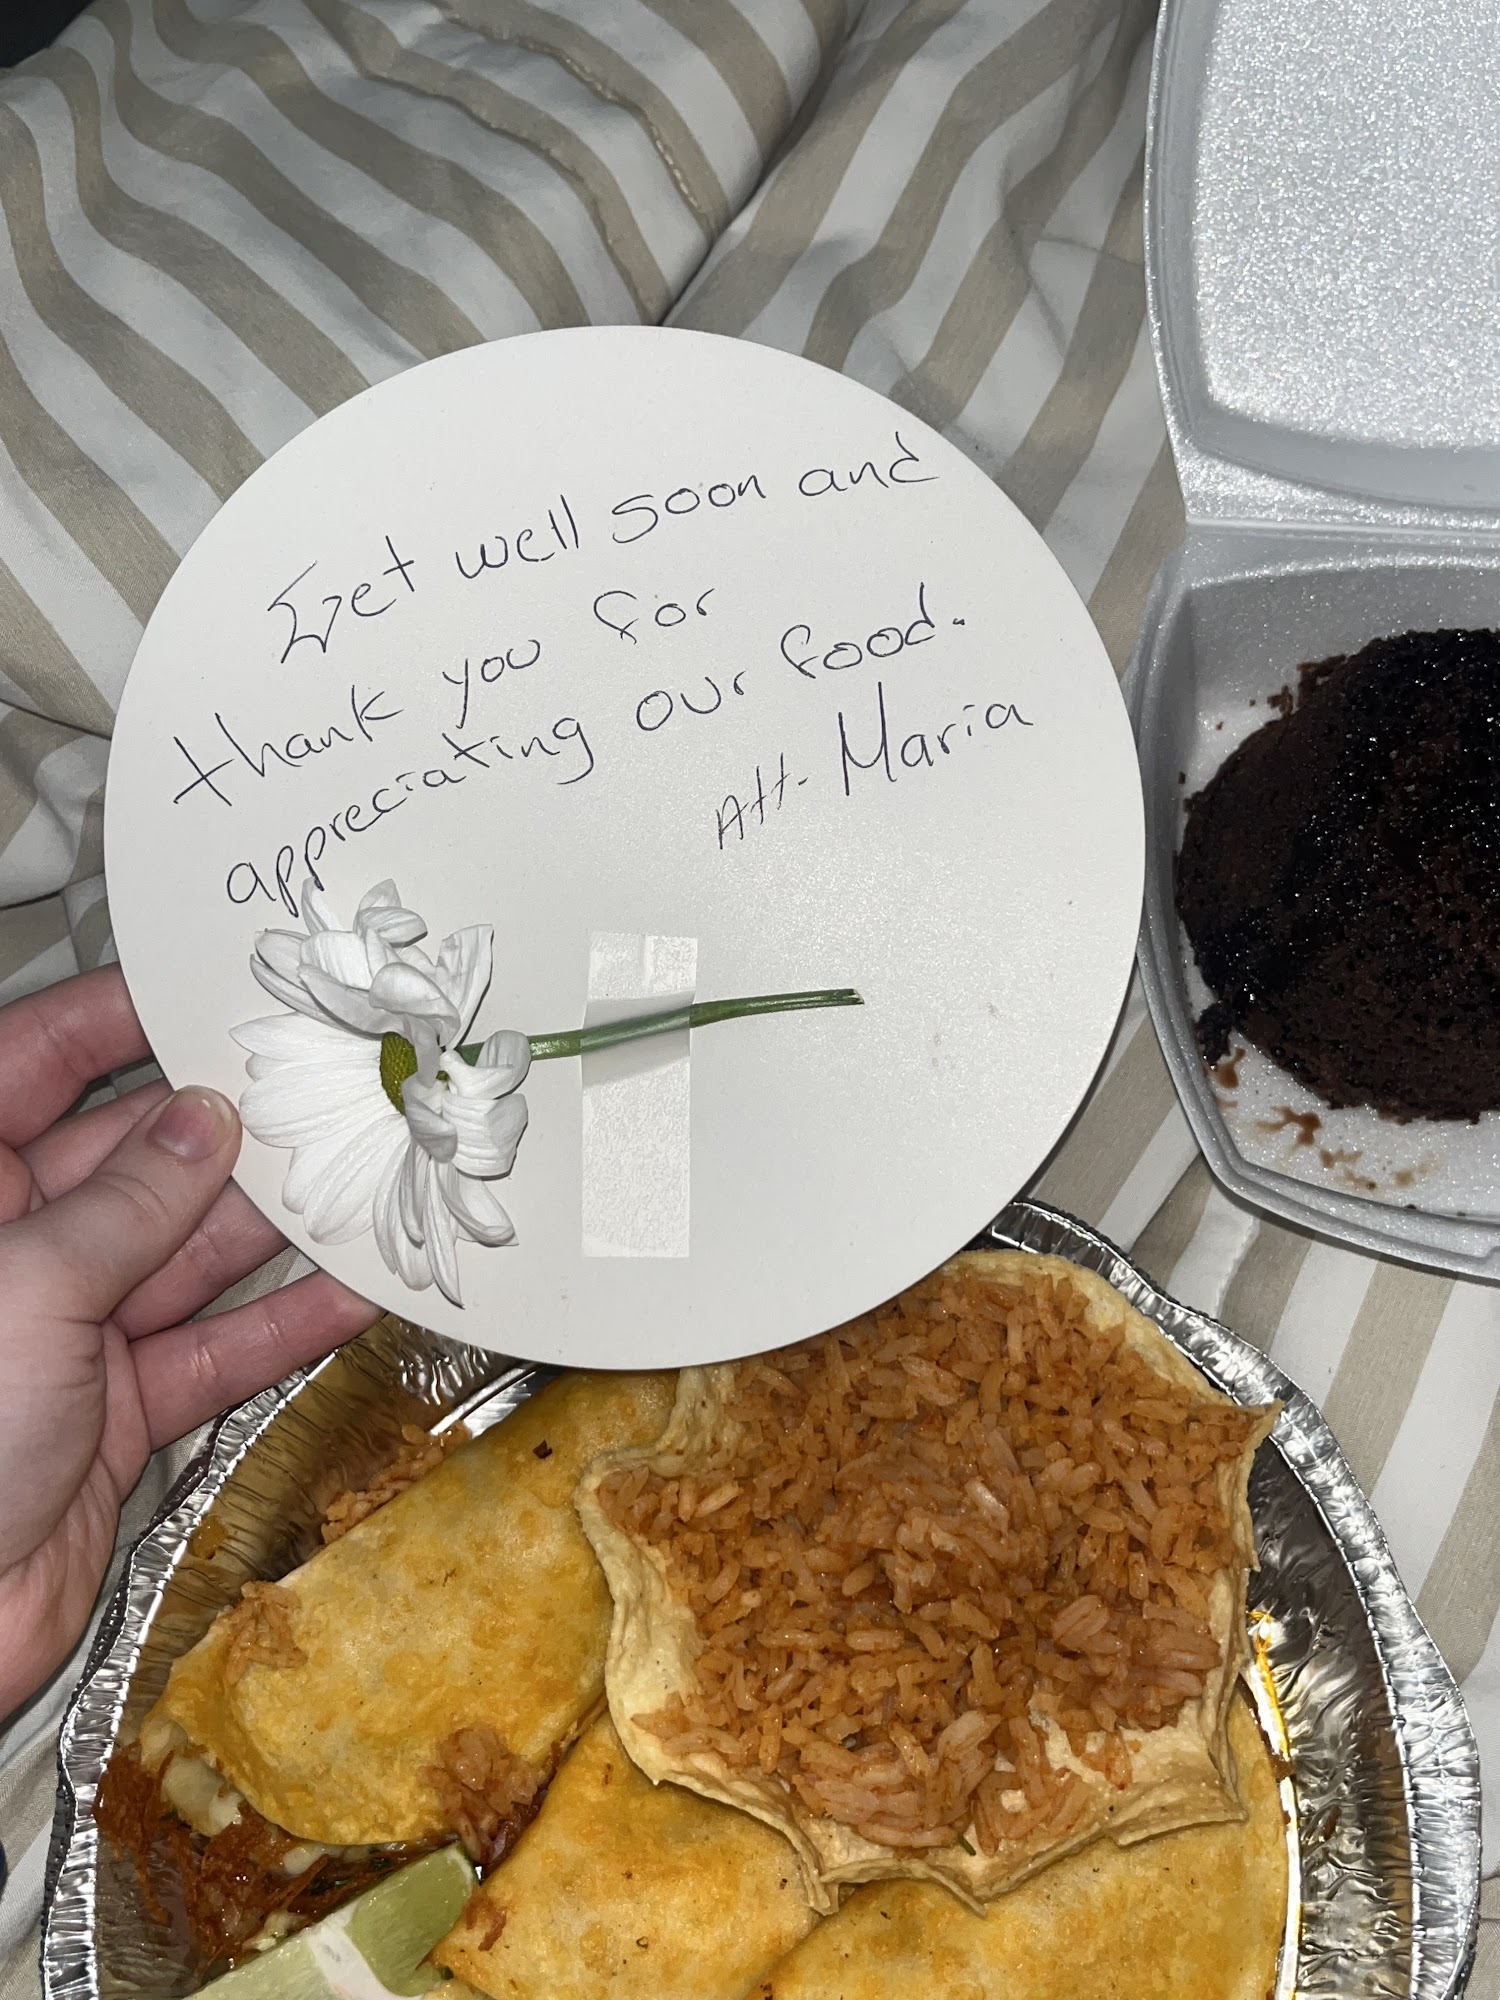 Get well soon and
thank you for
appreciating our food.
Att- Maria